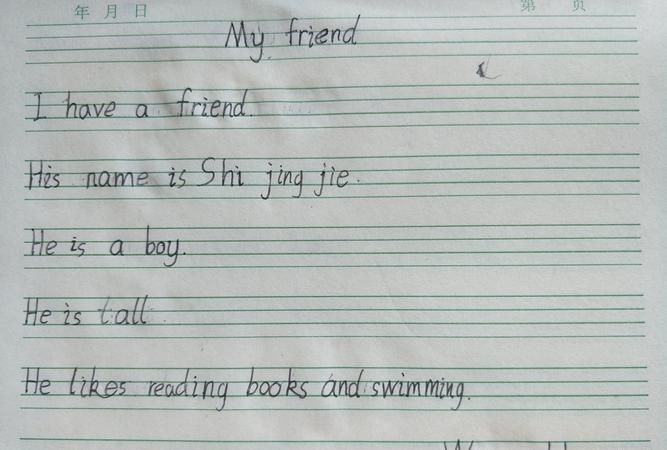 年 月 日 第 页
My friend
I have a friend.
His name is Shi jing jie.
He is a boy.
He is tall
He likes reading books and swimming.